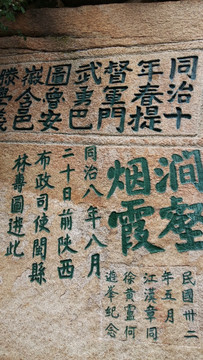 同治十
年春提
督軍門
武勇巴
圖魯安
徽合邑
澗壑
烟霞
民國卅二
年五月
江漢章同
遊峯紀念
同治八年八月
二十日前陝西
布政司使閩縣
林壽圖遊此